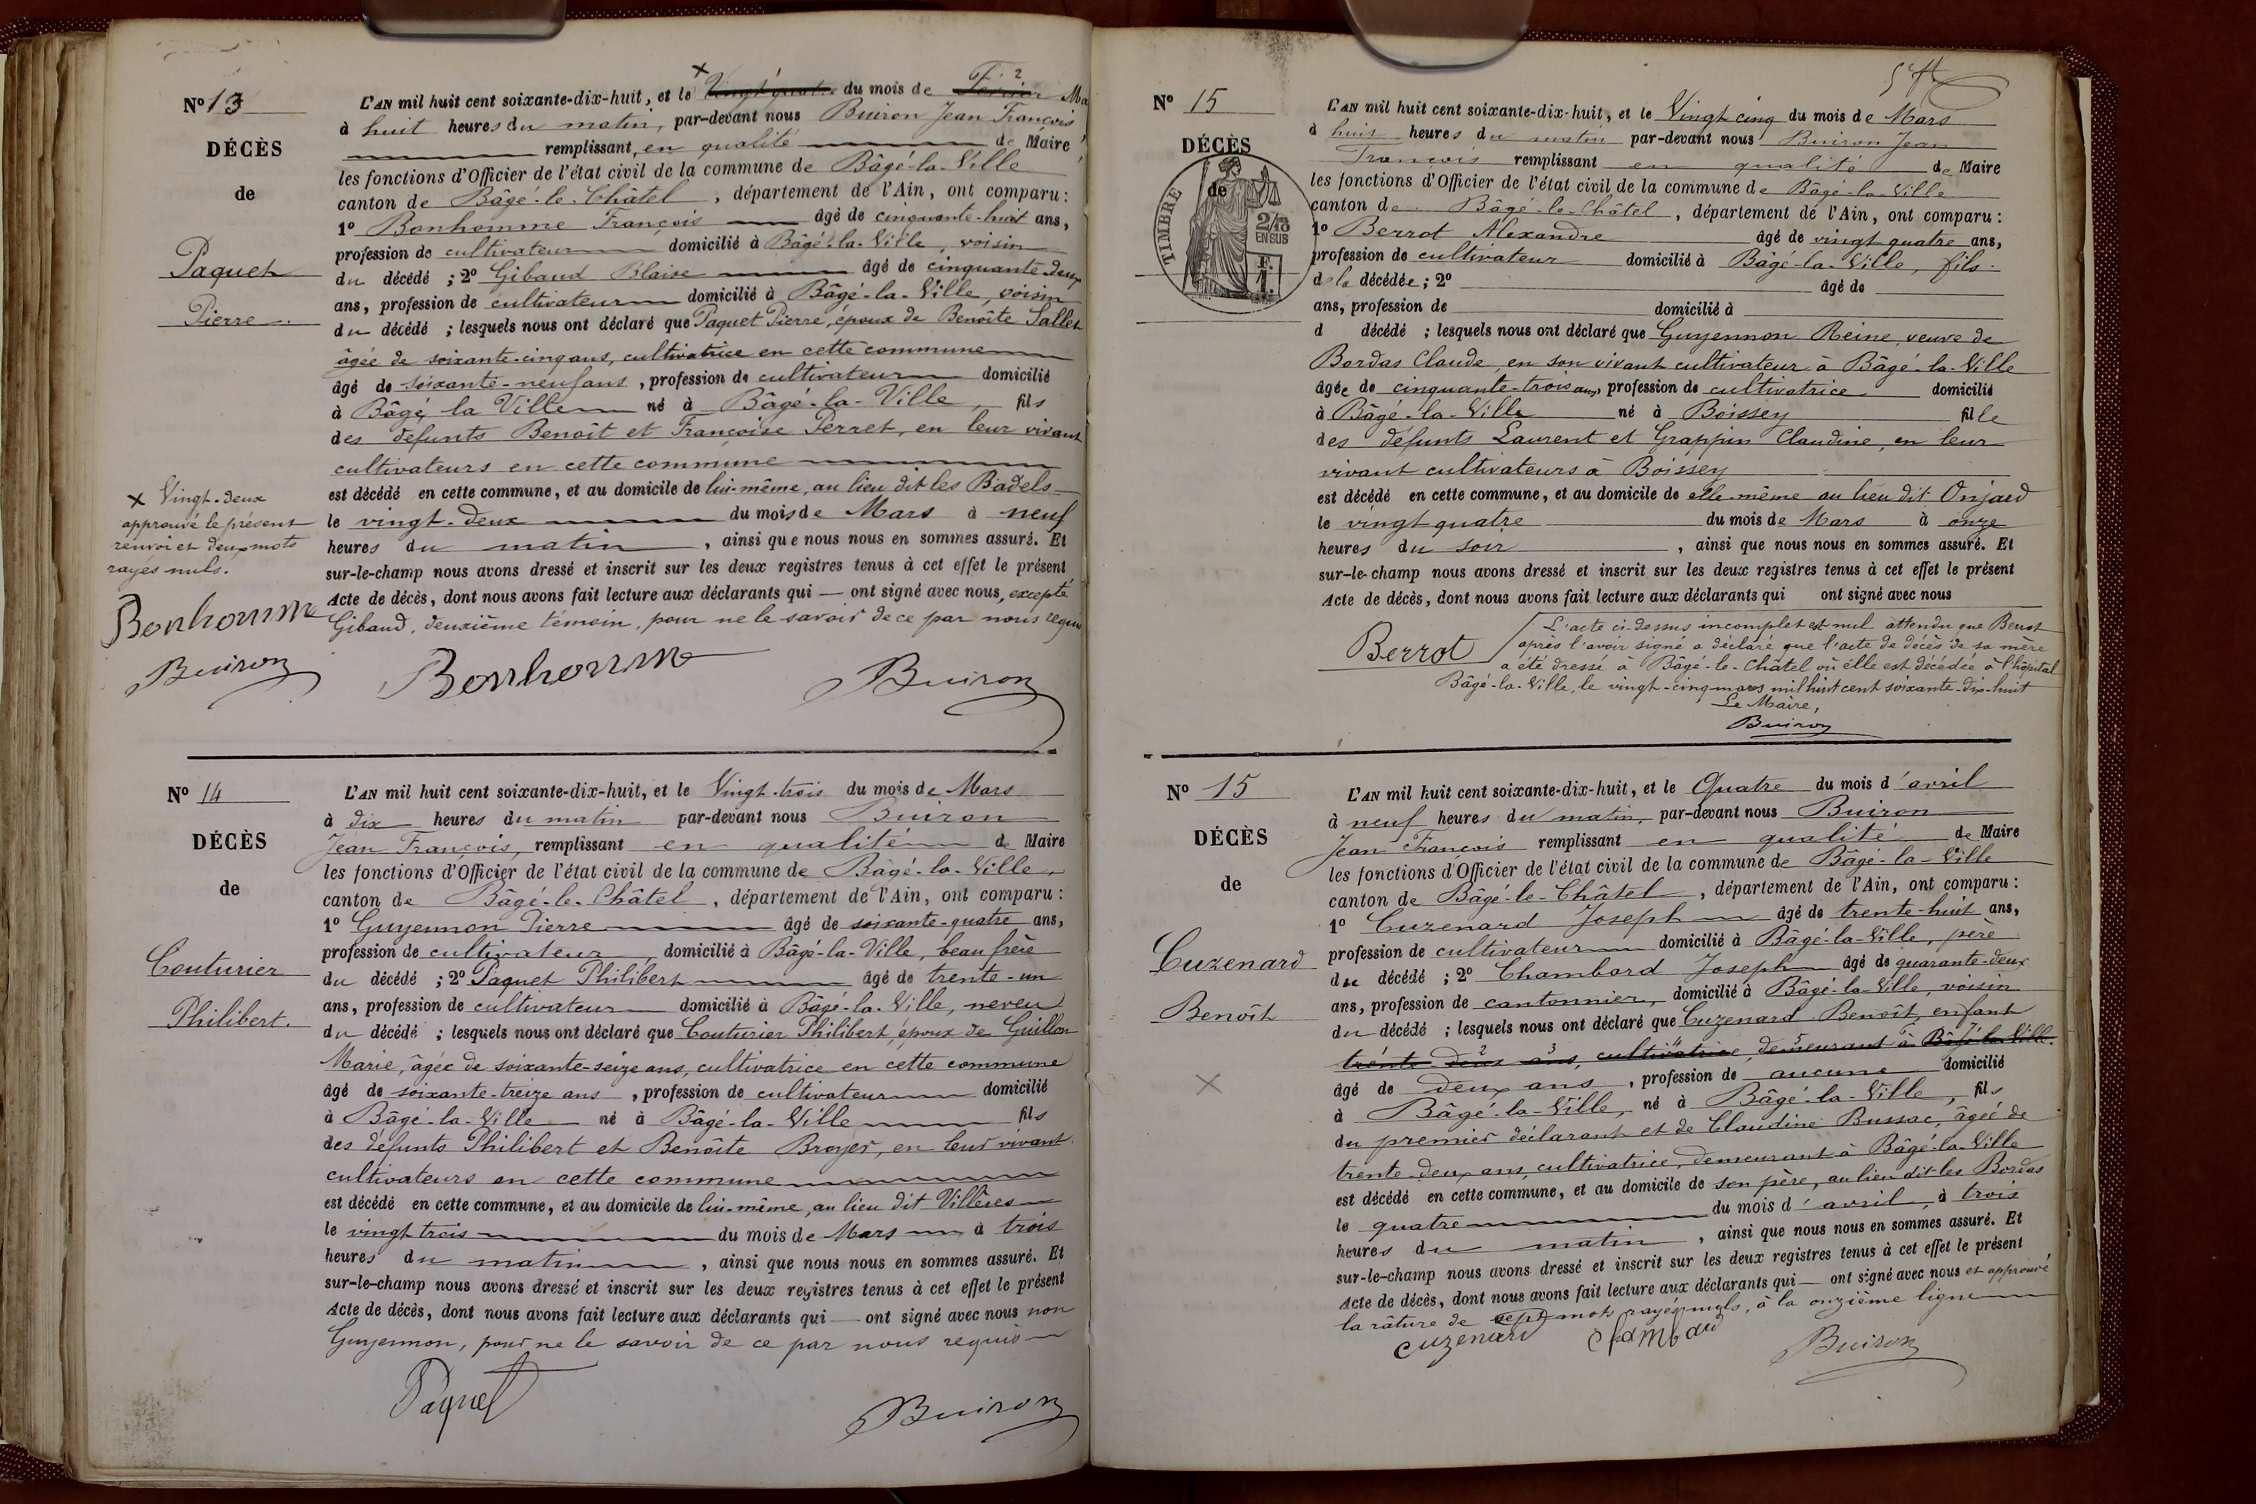 No 13
DÉCÈS
de
Paquet
Pierre
L'AN mil huit cent soixante-dix-huit, et le × Vingt quatre du mois de Février Ma
à huit heures du matin, par-devant nous Buiron Jean François
remplissant, en qualité de Maire
les fonctions d'Officier de l'état civil de la commune de Bâgé-la-Ville
canton de Bâgé-le-Châtel, département de l'Ain, ont comparu:
1º Bonhomme François âgé de cinquante-huit ans,
profession de cultivateur domicilié à Bâgé-la-Ville, voisin
du décédé ; 2º Gibaud Blaise âgé de cinquante deux
ans, profession de cultivateur domicilié à Bâgé-la-Ville, voisin
du décédé ; lesquels nous ont déclaré que Paquet Pierre, époux de Benoîte Sallet
âgée de soixante-cinq ans, cultivatrice en cette commune
âgé de soixante-neuf ans, profession de cultivateur domicilié
à Bâgé la Ville né à Bâgé-la-Ville, fils
des défunts Benoît et Françoise Perret, en leur vivant
cultivateurs en cette commune
est décédé en cette commune, et au domicile de lui-même, au lieu dit les Badels
le vingt-deux du mois de Mars à neuf
heures du matin, ainsi que nous nous en sommes assuré. Et
sur-le-champ nous avons dressé et inscrit sur les deux registres tenus à cet effet le présent
Acte de décès, dont nous avons fait lecture aux déclarants qui — ont signé avec nous, excepté
Gibaud, deuxième témoin, pour ne le savoir de ce par nous requis
× Vingt-deux
approuvé le présent
renvoi et deux mots
rayés nuls.
Bonhomme
Buiron
Bonhomme
Buiron
No 14
DÉCÈS
de
Couturier
Philibert.
L'AN mil huit cent soixante-dix-huit, et le Vingt-trois du mois de Mars
à dix heures du matin par-devant nous Buiron
Jean François, remplissant en qualité de Maire
les fonctions d'Officier de l'état civil de la commune de Bâgé-la-Ville,
canton de Bâgé-le-Châtel, département de l'Ain, ont comparu:
1º Guyennon Pierre âgé de soixante-quatre ans,
profession de cultivateur, domicilié à Bâgé-la-Ville, beau frère
du décédé ; 2º Paquet Philibert âgé de trente-un
ans, profession de cultivateur domicilié à Bâgé-la-Ville, neveu
du décédé ; lesquels nous ont déclaré que Couturier Philibert, époux de Guillon
Marie, âgée de soixante-seize ans, cultivatrice en cette commune
âgé de soixante-treize ans, profession de cultivateur domicilié
à Bâgé-la-Ville né à Bâgé-la-Ville fils
des défunts Philibert et Benoîte Broyer, en leur vivant
cultivateurs en cette commune
est décédé en cette commune, et au domicile de lui-même, au lieu dit Villères
le vingt trois du mois de Mars à trois
heures du matin, ainsi que nous nous en sommes assuré. Et
sur-le-champ nous avons dressé et inscrit sur les deux registres tenus à cet effet le présent
Acte de décès, dont nous avons fait lecture aux déclarants qui — ont signé avec nous non
Guyennon, pour ne le savoir de ce par nous requis
Paquet
Buiron
No 15
DÉCÈS
de
TIMBRE
2/10
EN SUS
L'AN mil huit cent soixante-dix-huit, et le Vingt cinq du mois de Mars
à huit heures du matin par-devant nous Buiron Jean
François remplissant en qualité de Maire
les fonctions d'Officier de l'état civil de la commune de Bâgé-la-Ville
canton de Bâgé-le-Châtel, département de l'Ain, ont comparu:
1º Berrot Alexandre âgé de vingt quatre ans,
profession de cultivateur domicilié à Bâgé-la-Ville, fils
de la décédée ; 2º âgé de
ans, profession de domicilié à
d décédé ; lesquels nous ont déclaré que Guyennon Reine, veuve de
Bordas Claude, en son vivant cultivateur à Bâgé-la-Ville
âgée de cinquante-trois ans, profession de cultivatrice domicilié
à Bâgé-la-Ville né à Boissey fille
des défunts Laurent et Grappin Claudine, en leur
vivant cultivateurs à Boissey
est décédé en cette commune, et au domicile de elle-même au lieu dit Onjard
le vingt quatre du mois de Mars à onze
heures du soir, ainsi que nous nous en sommes assuré. Et
sur-le-champ nous avons dressé et inscrit sur les deux registres tenus à cet effet le présent
Acte de décès, dont nous avons fait lecture aux déclarants qui ont signé avec nous
Berrot
L'acte ci-dessus incomplet est nul attendu que Berrot
après l'avoir signé a déclaré que l'acte de décès de sa mère
a été dressé à Bâgé-le-Châtel où elle est décédée à l'hôpital
Bâgé-la-Ville, le vingt-cinq mars mil huit cent soixante-dix-huit
Le Maire,
Buiron
No 15
DÉCÈS
de
Cuzenard
Benoît
×
L'AN mil huit cent soixante-dix-huit, et le Quatre du mois d'avril
à neuf heures du matin, par-devant nous Buiron
Jean François remplissant en qualité de Maire
les fonctions d'Officier de l'état civil de la commune de Bâgé-la-Ville
canton de Bâgé-le-Châtel, département de l'Ain, ont comparu:
1º Cuzenard Joseph âgé de trente-huit ans,
profession de cultivateur domicilié à Bâgé-la-Ville, père
du décédé ; 2º Chambard Joseph âgé de quarante-deux
ans, profession de cantonnier, domicilié à Bâgé-la-Ville, voisin
du décédé ; lesquels nous ont déclaré que Cuzenard Benoît, enfant
trente deux ans, cultivatrice, demeurant à Bâgé-la-Ville.
âgé de deux ans, profession de aucune domicilié
à Bâgé-la-Ville, né à Bâgé-la-Ville, fils
du premier déclarant et de Claudine Bussac, âgée de
trente-deux ans, cultivatrice, demeurant à Bâgé-la-Ville
est décédé en cette commune, et au domicile de son père, au lieu dit les Bordas
le quatre du mois d'avril, à trois
heures du matin, ainsi que nous nous en sommes assuré. Et
sur-le-champ nous avons dressé et inscrit sur les deux registres tenus à cet effet le présent
Acte de décès, dont nous avons fait lecture aux déclarants qui — ont signé avec nous et approuvé
la râture de sept mots rayés nuls, à la onzième ligne
cuzenard
chambard
Buiron